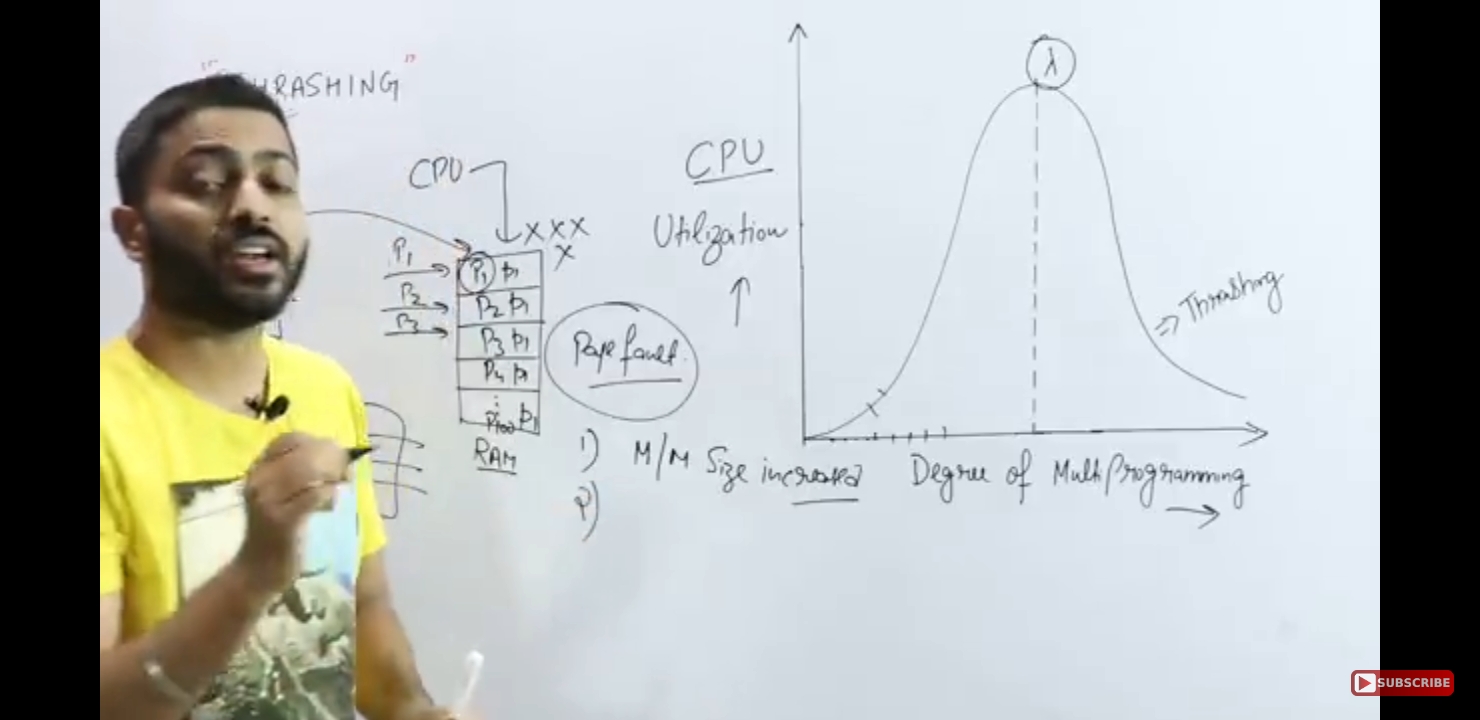 "THRASHING"
CPU
X X X
X
P1
P2
P3
P1 P1
P2 P1
P3 P1
P4 P1
P100 P1
RAM
Page fault.
1) M/M Size increased
2)
CPU
Utilization
λ
Thrashing
Degree of MultiProgramming
SUBSCRIBE